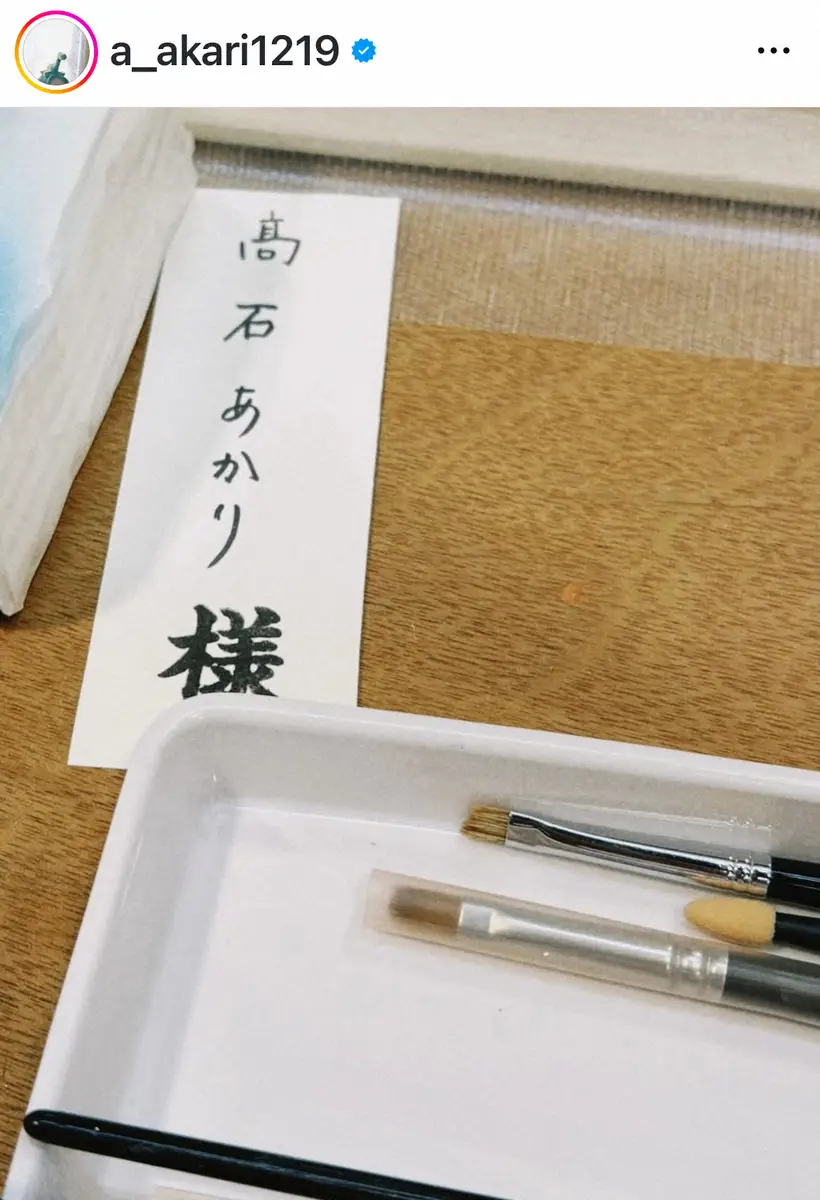 a_akari1219
髙石あかり様